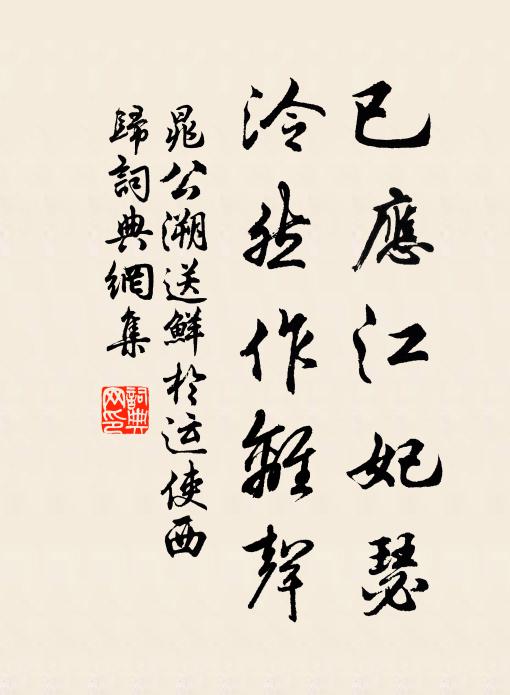 已應江妃瑟
泠然作離聲
晁公溯送鮮於运使西
歸詞典網集
詞典
网印